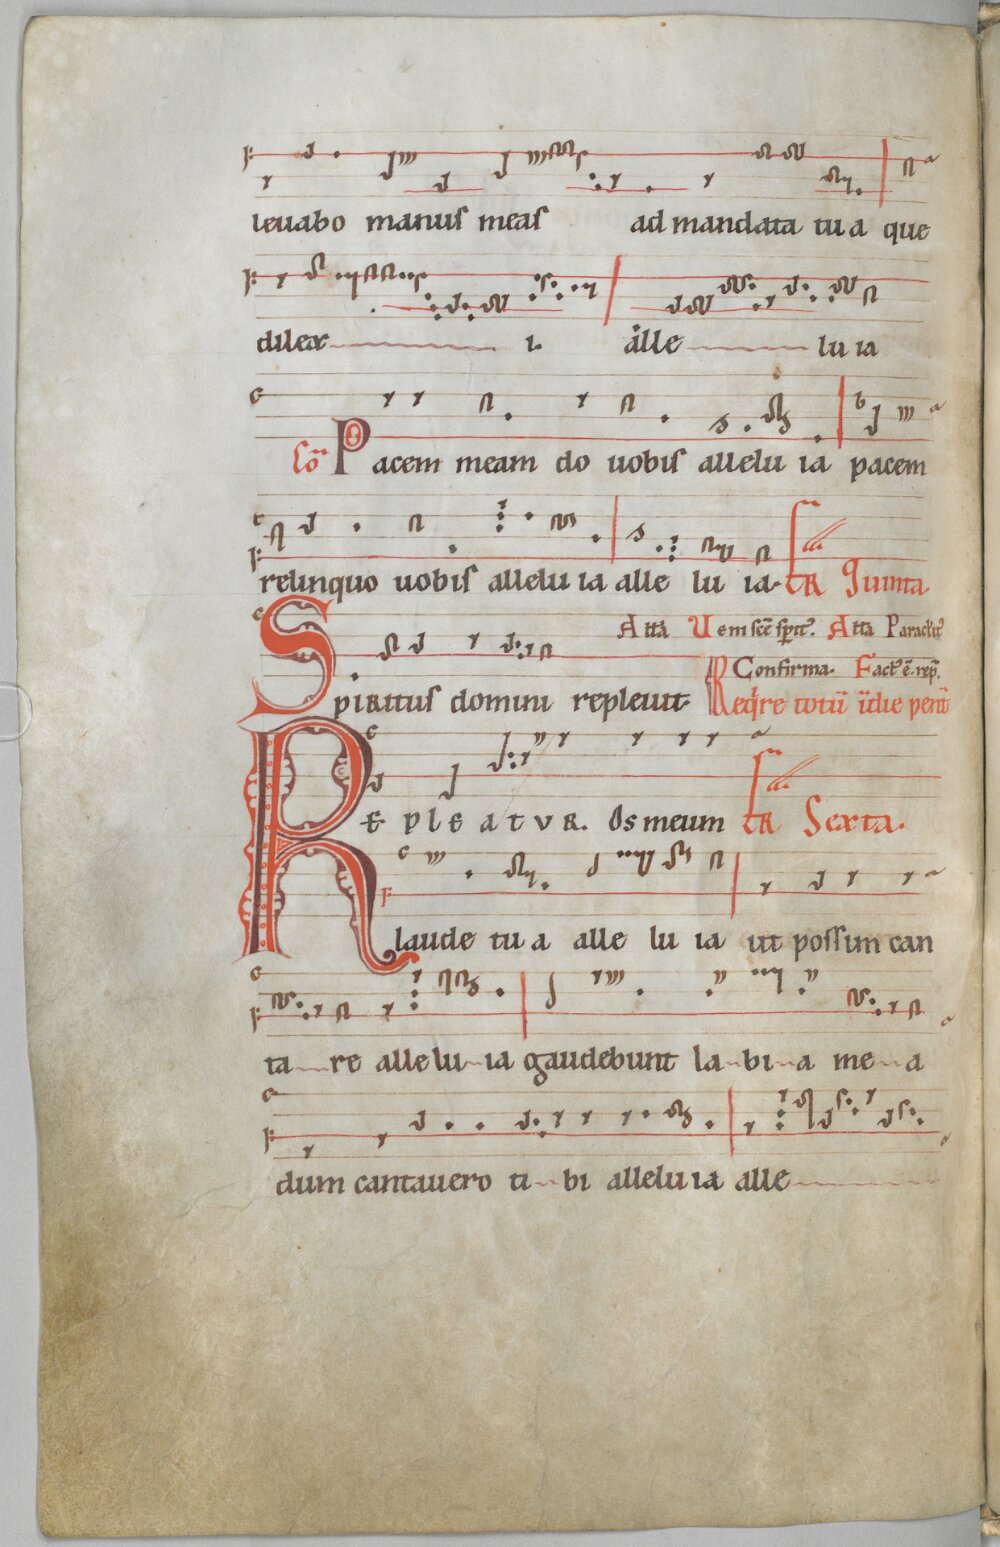 leuabo manus meas ad mandata tua que
dilex i. alle lu ia
Cō Pacem meam do uobis allelu ia pacem
relinquo uobis allelu ia alle lu ia. FR Quinta
Atta Ueni scē sp̄itꝰ. Atta Paraclitꝰ
Confirma. Factꝰ ē. rep̄.
Spiritus domini repleuit Reqre totū īdie pent̄
REPLEATVR. Os meum FR Sexta.
laude tu a alle lu ia ut possim can
ta re allelu ia gaudebunt la bi a me a
dum cantauero ti bi allelu ia alle